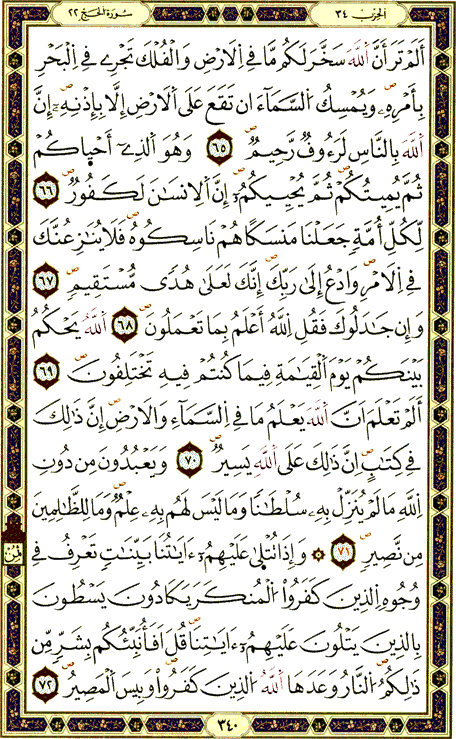 الحزب ٣٤
سورة الحج ٢٢
أَلَمْ تَرَ أَنَّ اَللَّهَ سَخَّرَ لَكُم مَّا فِي اِلَارْضِ وَالْفُلْكَ تَجْرِے فِي اِلْبَحْرِ
بِأَمْرِهِۦ وَيُمْسِكُ اُلسَّمَآءَ ان تَقَعَ عَلَى اَلَارْضِ إِلَّا بِإِذْنِهِۦٓ إِنَّ
اَللَّهَ بِالنَّاسِ لَرَءُوفٞ رَّحِيمٞ ٦٥ وَهُوَ اَلذِےٓ أَحْي۪اكُمْ
ثُمَّ يُمِيتُكُمْ ثُمَّ يُحْيِيكُمُۥٓ إِنَّ اَلِانسَٰنَ لَكَفُورٞ ٦٦
لِّكُلِّ أُمَّةٖ جَعَلْنَا مَنسَكاً هُمْ نَاسِكُوهُ فَلَا يُنَٰزِعُنَّكَ
فِي اِلَامْرِ وَادْعُ إِلَىٰ رَبِّكَ إِنَّكَ لَعَلَىٰ هُدىٗ مُّسْتَقِيمٖ ٦٧
وَإِن جَٰدَلُوكَ فَقُلِ اِللَّهُ أَعْلَمُ بِمَا تَعْمَلُونَ ٦٨ اَللَّهُ يَحْكُمُ
بَيْنَكُمْ يَوْمَ اَلْقِيَٰمَةِ فِيمَا كُنتُمْ فِيهِ تَخْتَلِفُونَ ٦٩
أَلَمْ تَعْلَمَ اَنَّ اَللَّهَ يَعْلَمُ مَا فِي اِلسَّمَآءِ وَالَارْضِ إِنَّ ذَٰلِكَ
فِي كِتَٰبٍ إِنَّ ذَٰلِكَ عَلَى اَللَّهِ يَسِيرٞ ٧٠ وَيَعْبُدُونَ مِن دُونِ
اِللَّهِ مَا لَمْ يُنَزِّلْ بِهِۦ سُلْطَٰناً وَمَا لَيْسَ لَهُم بِهِۦ عِلْمٞ وَمَا لِلظَّٰلِمِينَ
مِن نَّصِيرٖ ٧١ ۞ وَإِذَا تُتْلَىٰ عَلَيْهِمُۥٓ ءَايَٰتُنَا بَيِّنَٰتٖ تَعْرِفُ فِي
وُجُوهِ اِلذِينَ كَفَرُواْ اُلْمُنكَرَ يَكَادُونَ يَسْطُونَ
بِالذِينَ يَتْلُونَ عَلَيْهِمُۥٓ ءَايَٰتِنَا قُلَ اَفَأُنَبِّئُكُم بِشَرّٖ مِّن
ذَٰلِكُمُ اُلنَّارُ وَعَدَهَا اَللَّهُ اُلذِينَ كَفَرُواْ وَبِيسَ اَلْمَصِيرُ ٧٢
ثمن
٣٤٠